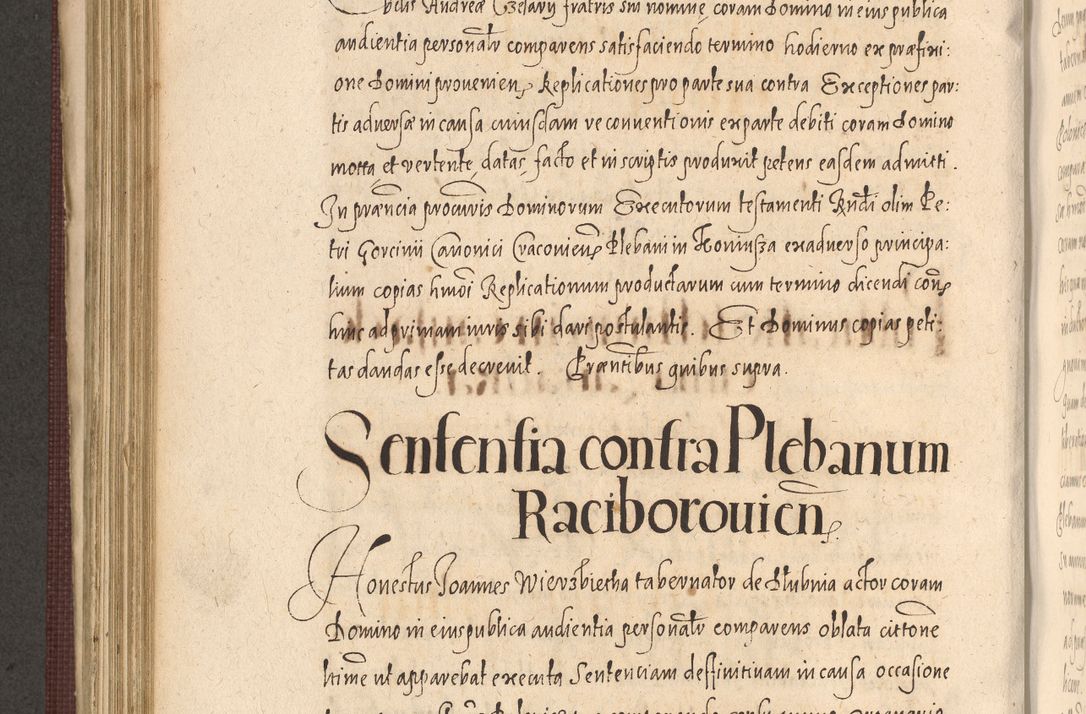 Andreæ Czelary fratris sui nomine coram Domino in eius publica
audientia personalr comparens satisfaciendo termino hodierno ex præfixi:
one Domini provenien, Replicationes pro parte sua contra Exceptiones par:
tis adversæ in causa cuiusdam reconventionis ex parte debiti coram Domino
motta et vertente, datas, facto et in scriptis produxit petens easdem admitti.
In præncia procuris Dominorum Executorum testamenti Rndi olim Pe:
tri Gorcinii Canonici Cracovien, Plebani in Koniusza exadverso principa:
lium copias hmoi Replicationum productarum cum termino dicendi con,
hinc ad primam iuris sibi dari postulantis. Et Dominus copias peti:
tas dandas esse decrevit. Præntibus quibus supra.
Sententia contra Plebanum
Raciborouien,
Honestus Joannes Wierzbiecha tabernator de Hubnia actor coram
Domino in eius publica audientia personalr comparens oblata cittone
ltime ut apparebat executa Sentenciam deffinitivam in causa occasione